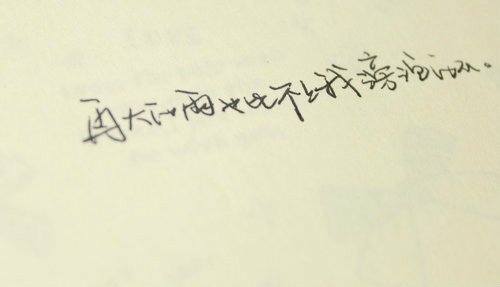 再大的雨也比不上我滂沱的泪。